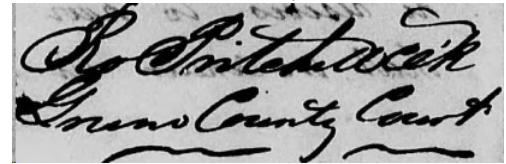 Ro Pritchett Clk
Greene County Court